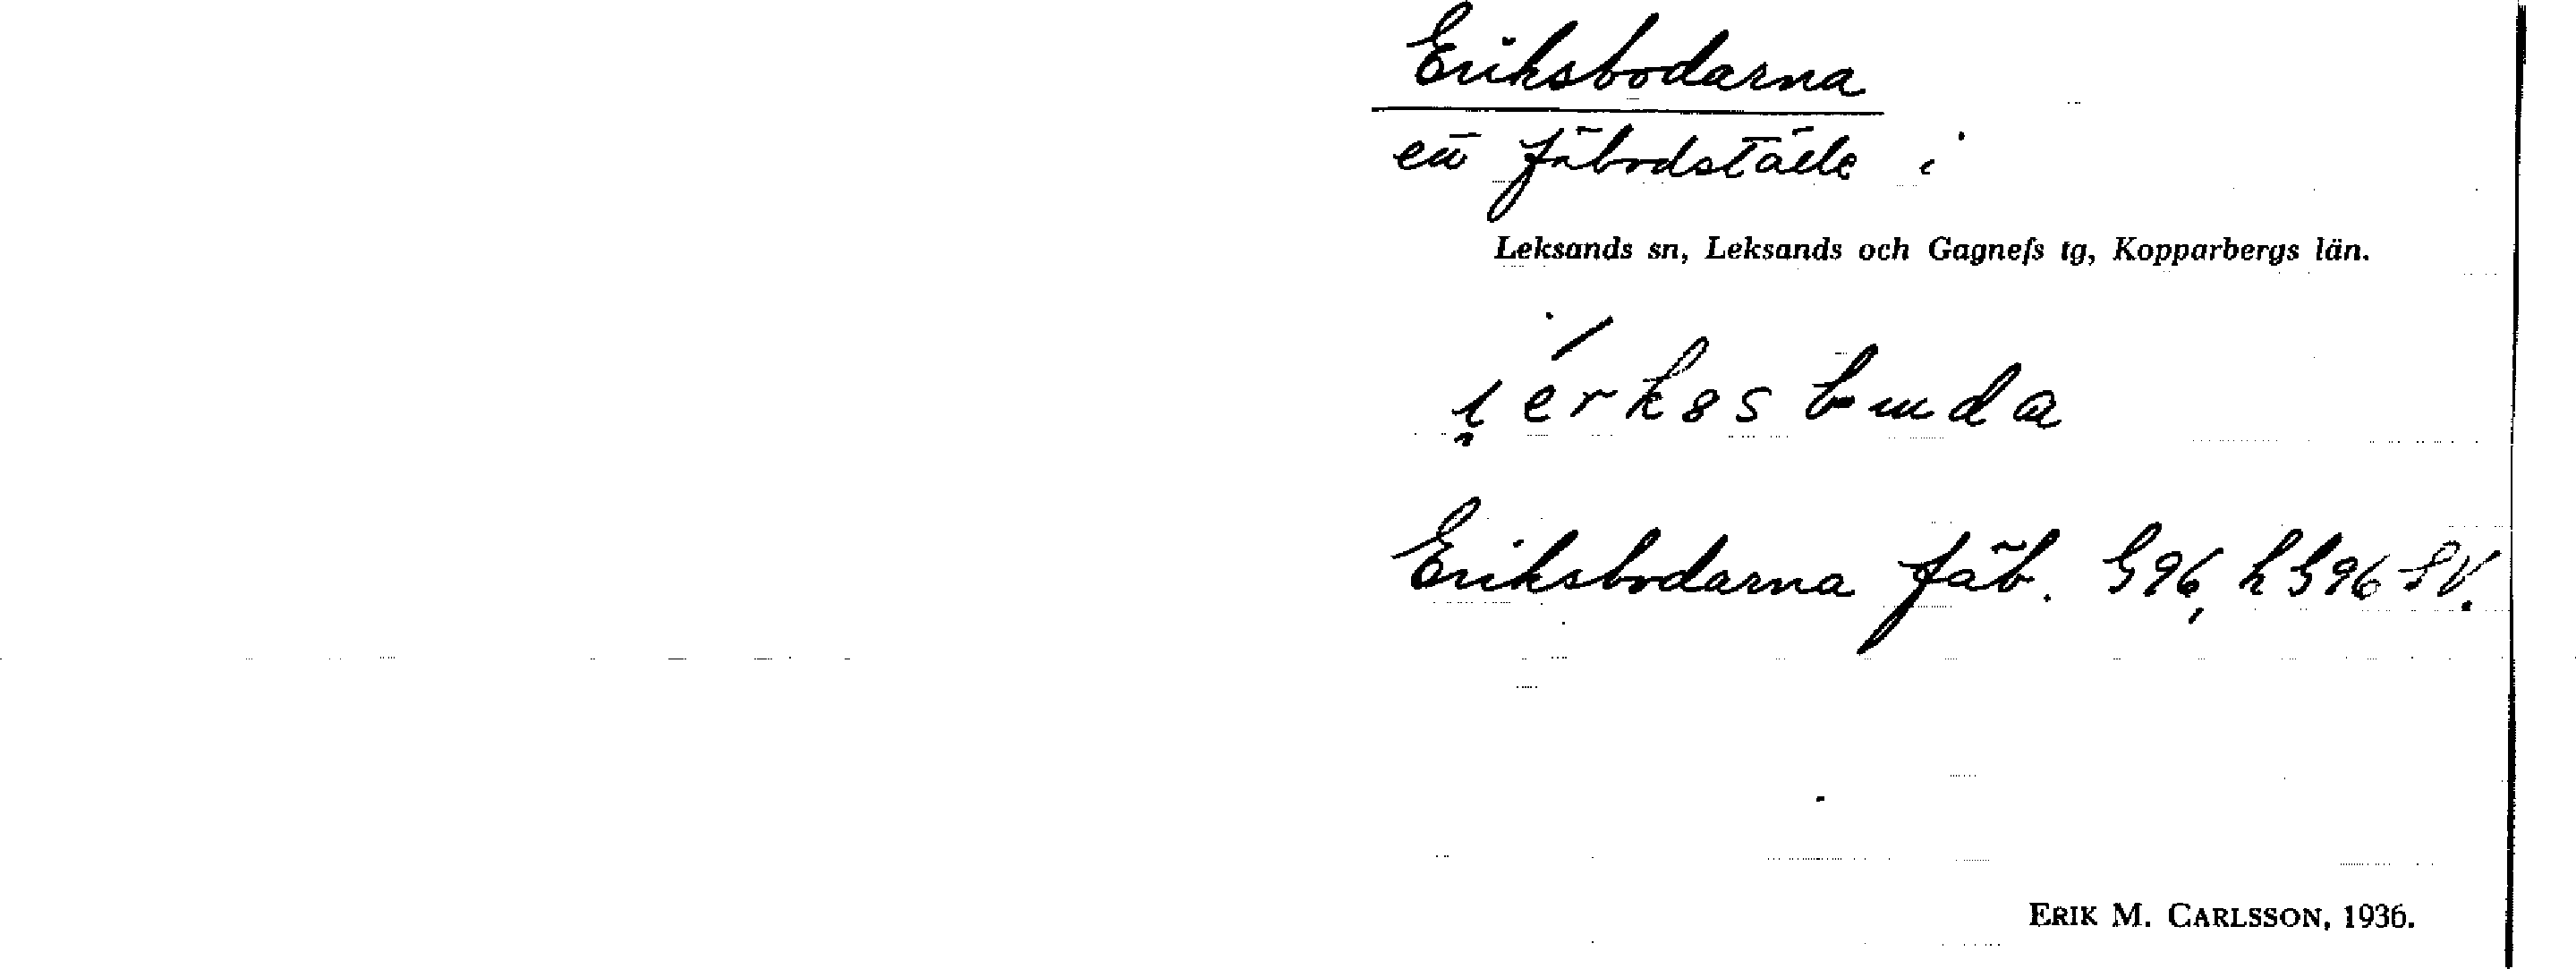 Eriksbodarna
ett fäbodställe i
Leksands sn, Leksands och Gagnefs tg, Kopparbergs län.
Eriksbodarna fäb. G96, h G96 SV.
ERIK M. CARLSSON, 1936.